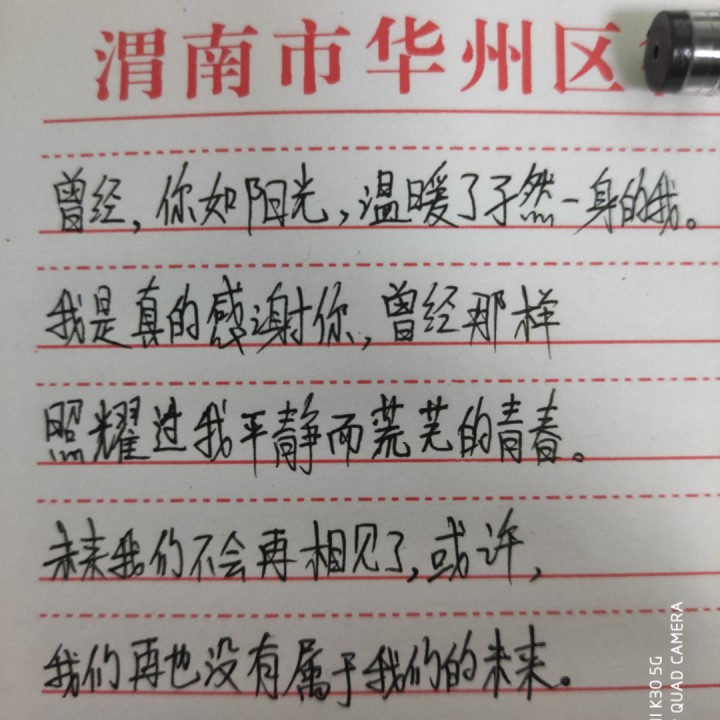 渭南市华州区
曾经，你如阳光，温暖了孑然一身的我。
我是真的感谢你，曾经那样
照耀过我平静而荒芜的青春。
未来我们不会再相见了，或许，
我们再也没有属于我们的未来。
MI K30 5G
QUAD CAMERA